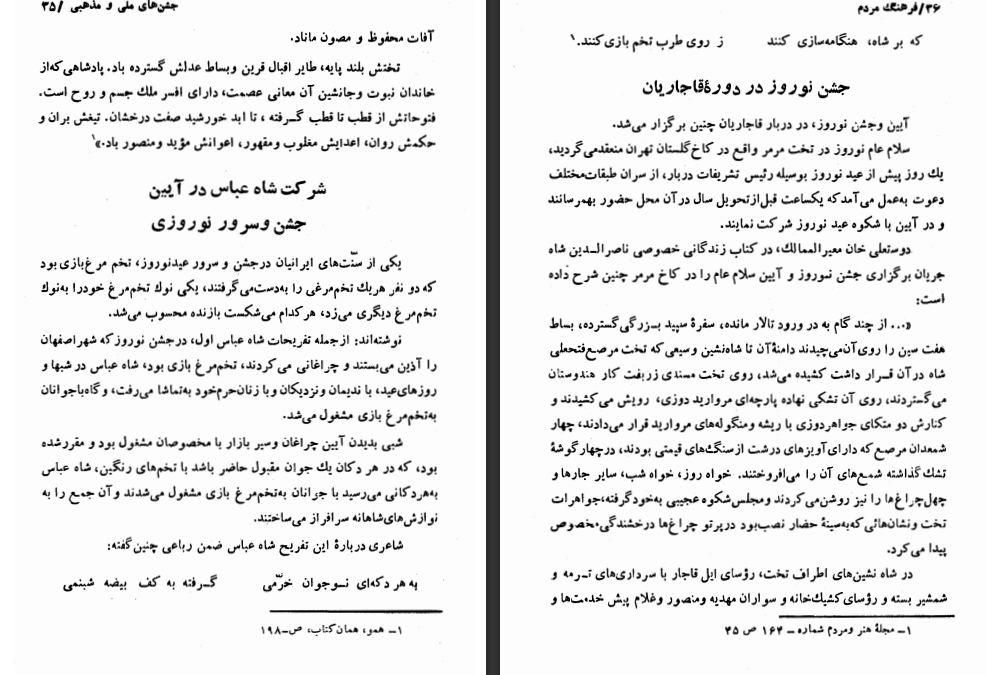 جشن‌های ملی و مذهبی /۳۵
آفات محفوظ و مصون ماناد.
تختش بلند پایه، طایر اقبال قرین وبساط عدلش گسترده باد. پادشاهی که از
خاندان نبوت وجانشین آن معانی عصمت، دارای افسر ملك جسم و روح است.
فتوحاتش از قطب تا قطب گـرفته ، تا ابد خورشید صفت درخشان. تیغش بران و
حکمش روان، اعدایش مغلوب ومقهور، اعوانش مؤید ومنصور باد.»۱
شرکت شاه عباس در آیین
جشن وسرور نوروزی
یکی از سنّت‌های ایرانیان درجشن و سرور عیدنوروز، تخم مرغ‌بازی بود
که دو نفر هریك تخم‌مرغی را به‌دست‌می‌گرفتند، یکی نوك تخم‌مرغ خودرا به‌نوك
تخم‌مرغ دیگری می‌زد، هرکدام می‌شکست بازنده محسوب می‌شد.
نوشته‌اند: ازجمله تفریحات شاه عباس اول، درجشن نوروز که شهر اصفهان
را آذین می‌بستند و چراغانی می‌کردند، تخم‌مرغ بازی بود، شاه عباس در شبها و
روزهای‌عید، با ندیمان ونزدیکان وبا زنان‌حرم‌خود به‌تماشا می‌رفت، وگاه‌باجوانان
به‌تخم‌مرغ بازی مشغول می‌شد.
شبی بدیدن آیین چراغان وسیر بازار با مخصوصان مشغول بود و مقررشده
بود، که در هر دکان یك جوان مقبول حاضر باشد با تخم‌های رنگین، شاه عباس
به‌هردکانی می‌رسید با جوانان به‌تخم‌مرغ بازی مشغول می‌شدند وآن جمع را به
نوازش‌های‌شاهانه سرافراز می‌ساختند.
شاعری دربارهٔ این تفریح شاه عباس ضمن رباعی چنین‌گفته:
به هر دکه‌ای نـوجوان خرّمی گـرفته به کف بیضه شبنمی
۱ـ همو، همان‌کتاب، ص-۱۹۸
۳۶/فرهنگ مردم
که بر شاه، هنگامه‌سازی کنند ز روی طرب تخم بازی‌کنند.۱
جشن نوروز در دورهٔقاجاریان
آیین وجشن نوروز، در دربار قاجاریان چنین برگزار می‌شد.
سلام عام نوروز در تخت مرمر واقع در کاخ‌گلستان تهران منعقدمی‌گردید،
یك روز پیش از عید نوروز بوسیله رئیس تشریفات دربار، از سران طبقات‌مختلف
دعوت به‌عمل می‌آمدکه یکساعت قبل‌ازتحویل سال درآن محل حضور بهم‌رسانند
و در آیین با شکوه عید نوروز شرکت نمایند.
دوستعلی خان معیرالممالك، در کتاب زندگانی خصوصی ناصرالـدین شاه
جریان برگزاری جشن نوروز و آیین سلام عام را در کاخ مرمر چنین شرح داده
است:
«... از چند گام به در ورود تالار مانده، سفرهٔ سپید بـزرگی‌گسترده، بساط
هفت سین را روی‌آن‌می‌چیدند دامنهٔ‌آن تا شاه‌نشین وسیعی که تخت مرصع‌فتحعلی
شاه درآن قـرار داشت کشیده می‌شد، روی تخت مسندی زربفت کار هندوستان
می‌گستردند، روی آن تشکی نهاده پارچه‌ای مروارید دوزی، رویش می‌کشیدند و
کنارش دو متکای جواهردوزی با ریشه ومنگوله‌های مروارید قرار می‌دادند، چهار
شمعدان مرصع که دارای‌آویزهای درشت ازسنگ‌های قیمتی بودند، درچهارگوشهٔ
تشك گذاشته شمع‌های آن را می‌افروختند. خواه روز، خواه شب، سایر جارها و
چهل‌چراغ‌ها را نیز روشن‌می‌کردند ومجلس‌شکوه عجیبی به‌خودگرفته،جواهرات
تخت ونشان‌هائی که‌به‌سینهٔ حضار نصب‌بود درپرتو چراغ‌ها درخشندگی‌مخصوص
پیدا می‌کرد.
در شاه نشین‌های اطراف تخت، رؤسای ایل قاجار با سرداری‌های تـرمه و
شمشیر بسته و رؤسای‌کشیك‌خانه و سواران مهدیه ومنصور وغلام پیش خدمت‌ها و
۱ـ مجلهٔ هنر ومردم شماره ـ ۱۶۴ ص ۴۵